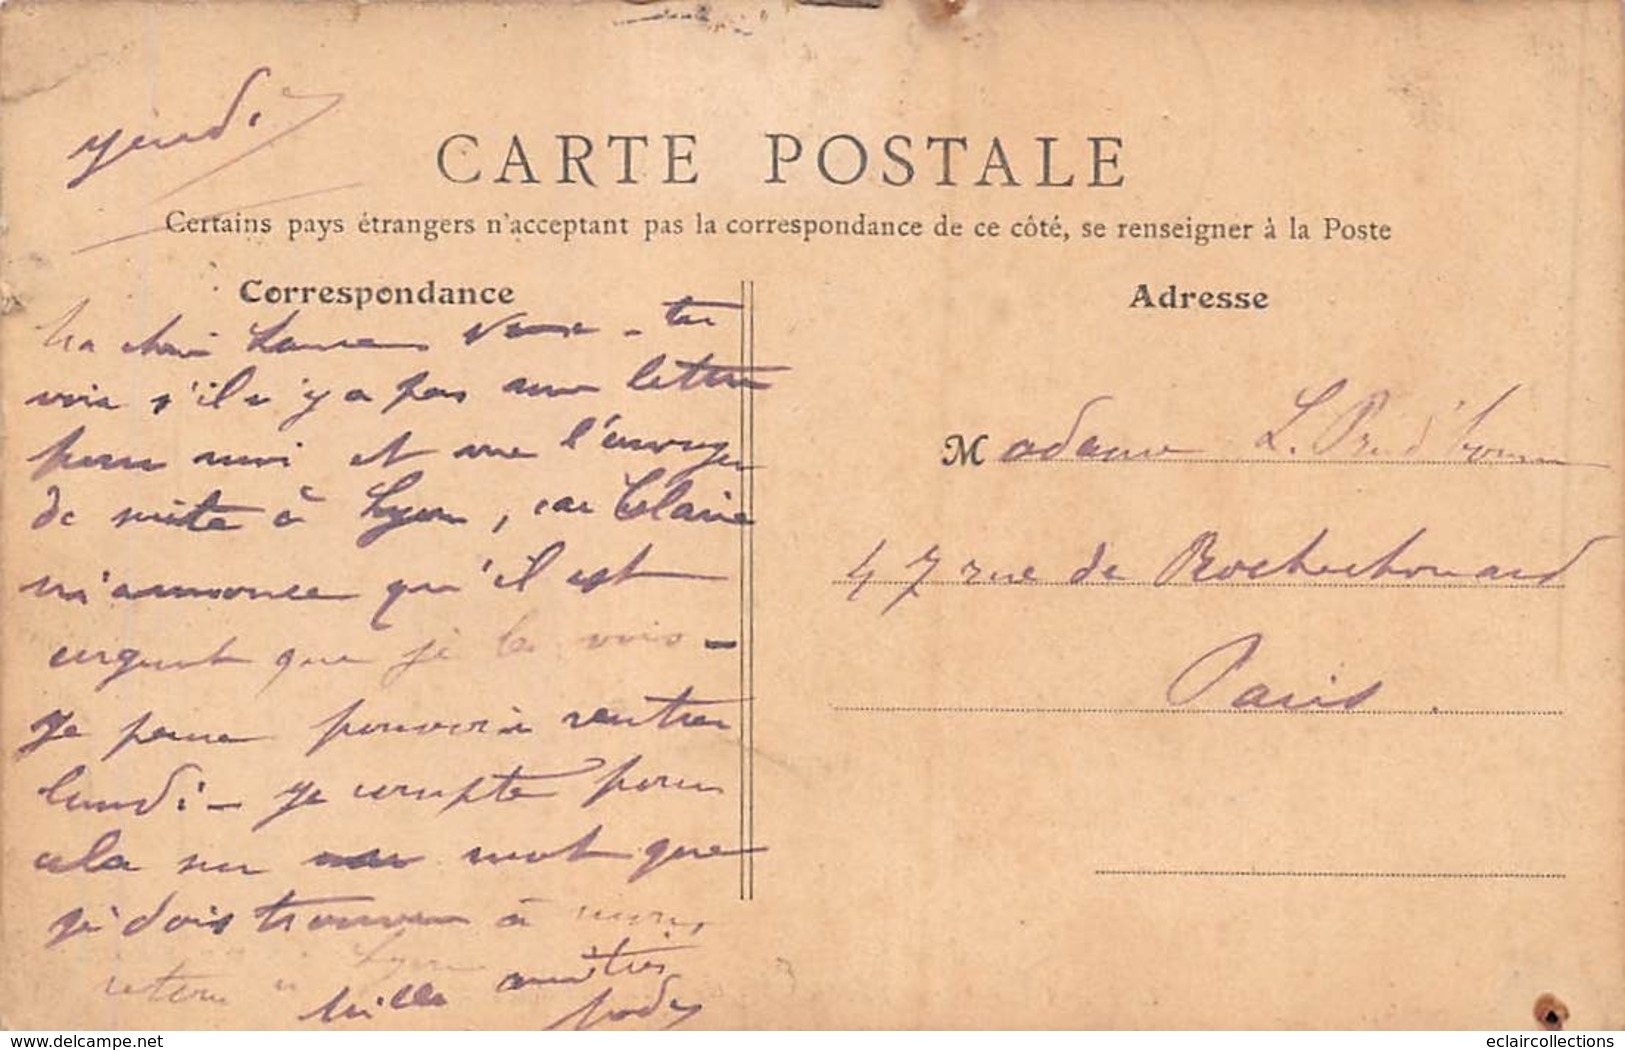 jeudi
CARTE POSTALE
Certains pays étrangers n'acceptant pas la correspondance de ce côté, se renseigner à la Poste
Correspondance
Ma chère Laure veux-tu
voir s'il n'y a pas une lettre
pour moi et me l'envoyer
de suite à Lyon, car Claire
m'annonce qu'il est
urgent que je le vois -
Je pense pouvoir rentrer
lundi - je compte pour
cela sur mot que
je dois trouver à mon
retour à Lyon
Mille amitiés
Adresse
Madame L. Prud'homme
47 rue de Rochechouard
Paris.
www.delcampe.net
eclaircollections